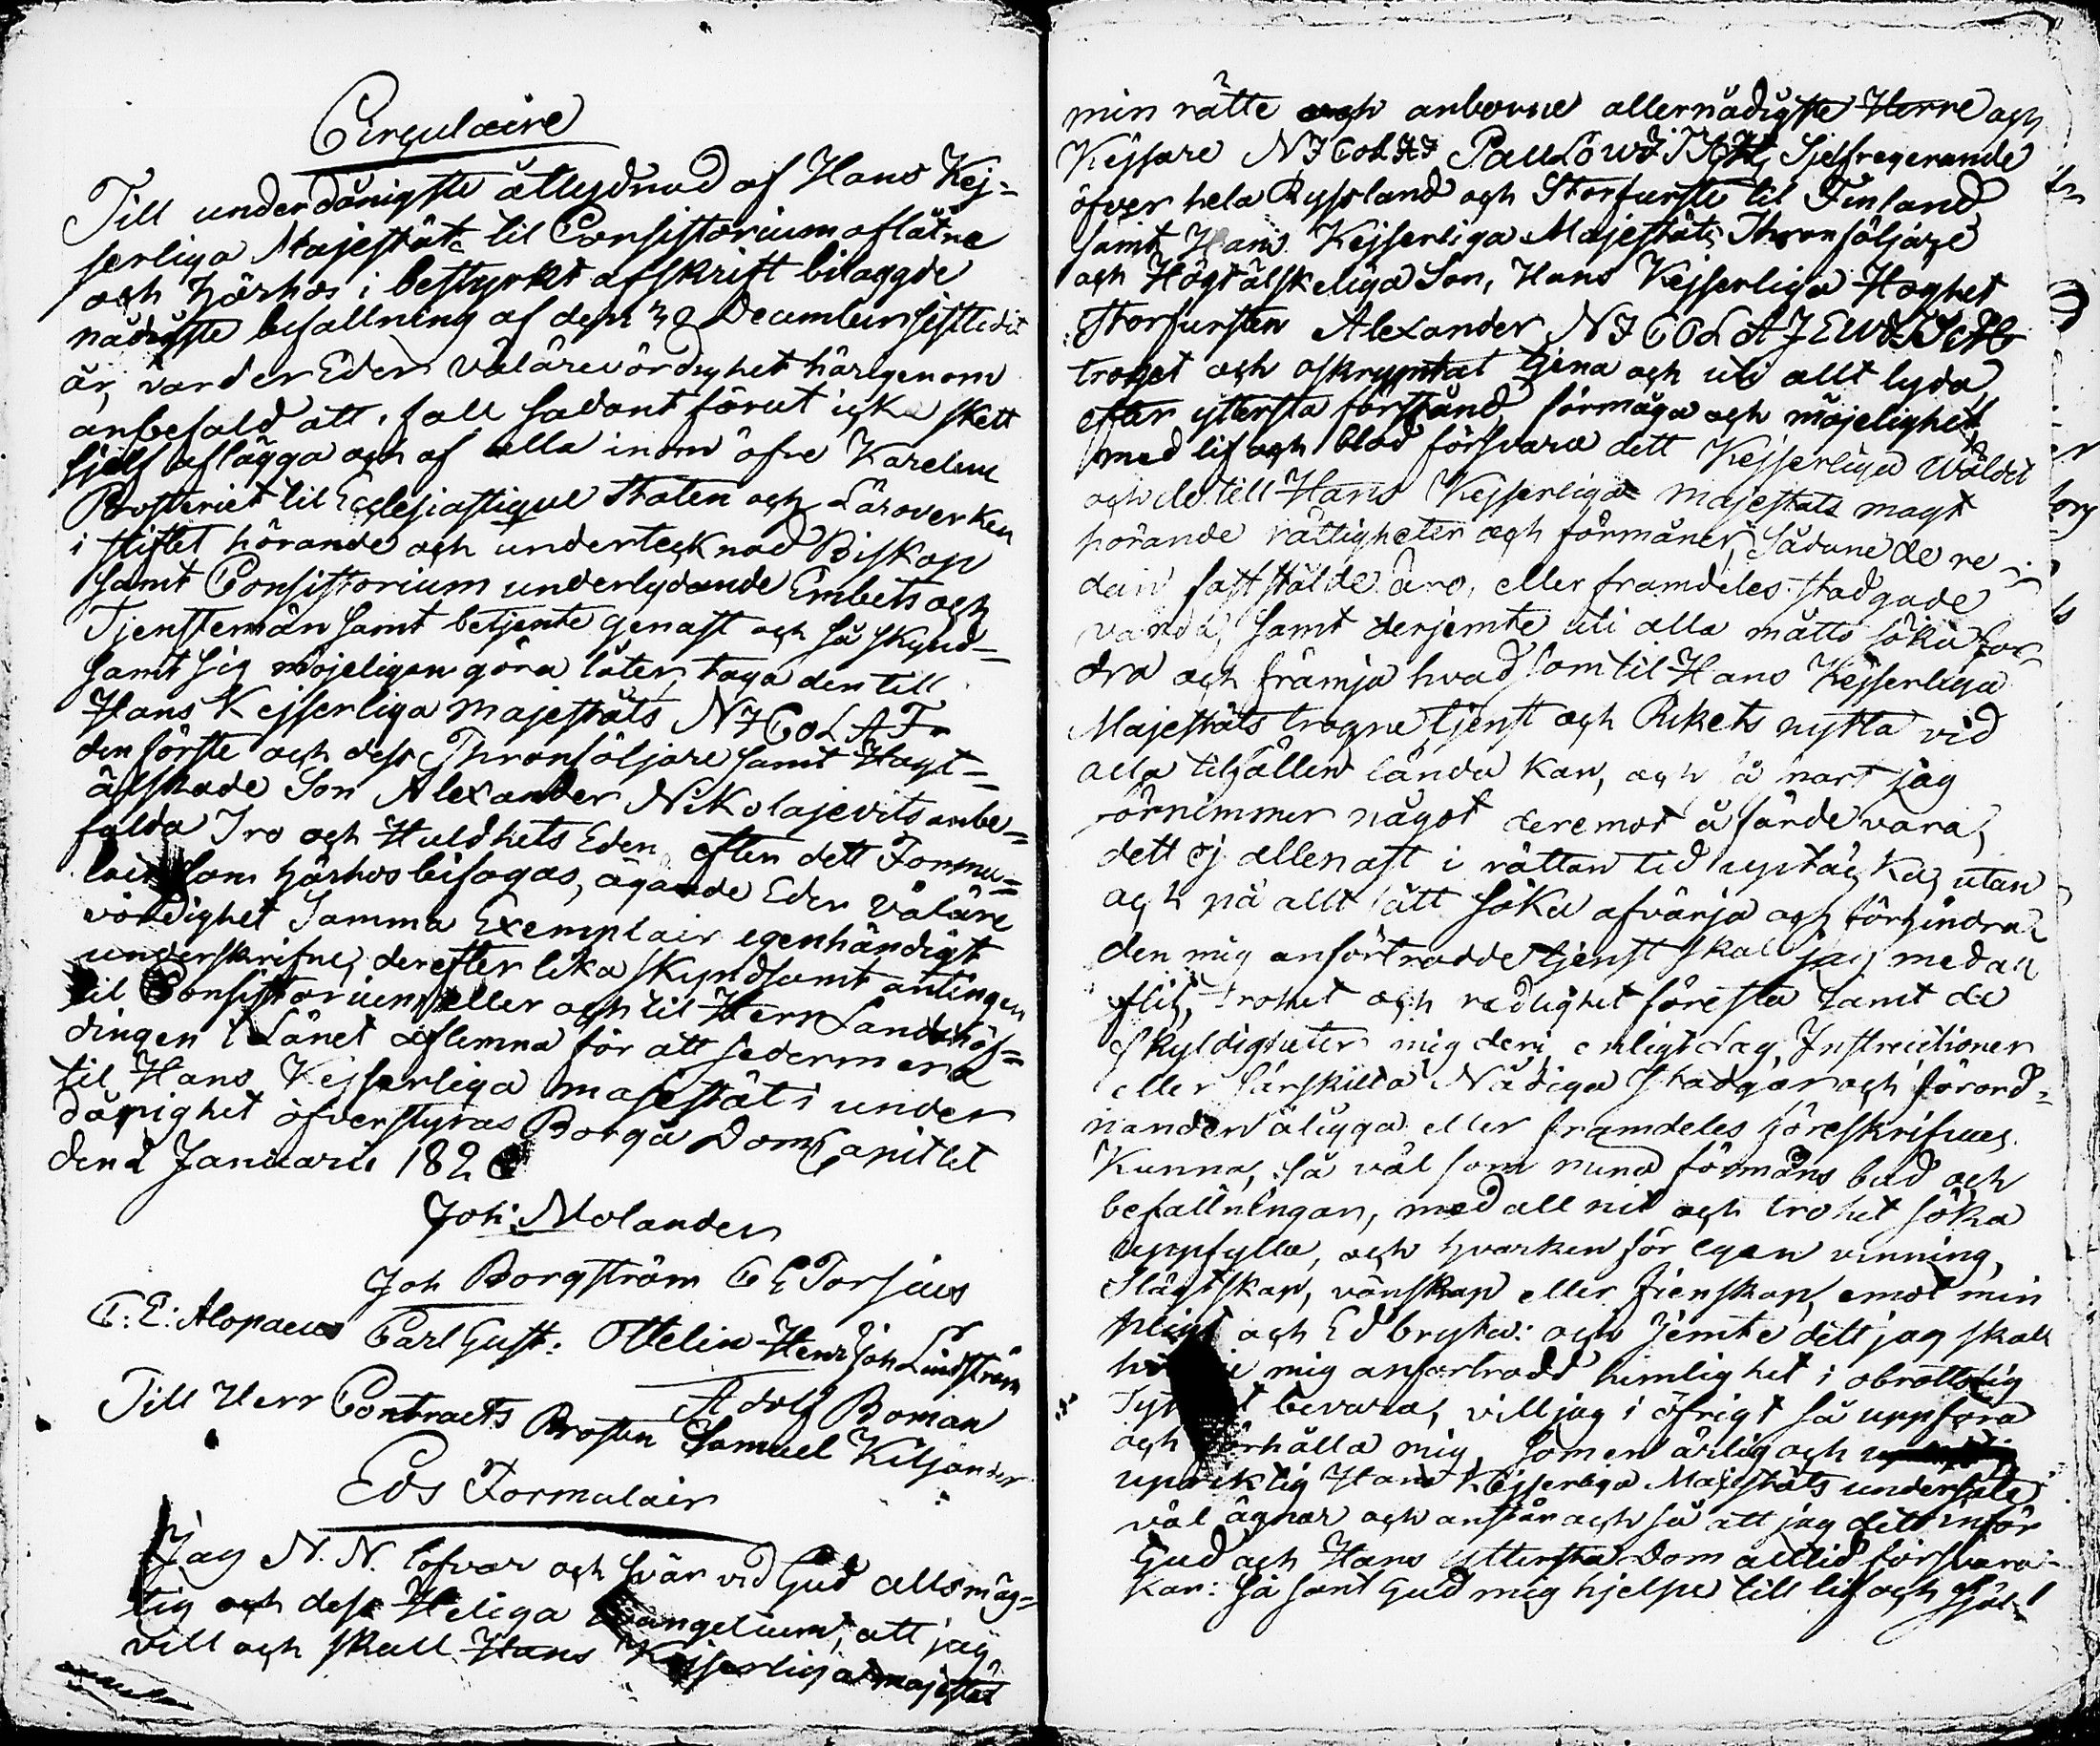 Circulaire
Till underdånigste åtlydnad af Hans Kej=
serliga Majestäts til Consistorium aflåtne
och härhos i bestyrkt afskrift bilaggde
nådigste befallning af den December sistledit
år, varder Eder Välärevördighet härigenom
anbefald att, i fall sådant förut icke skett
sjelf aflägga och af alla inom öfre Karelens
Prosteriet til Ecclesiastique Staten och Läroverken
i stiftet hörande och undertecknad Biskop
samt Consistorium underlydande Embets och
Tjenstemän samt betjente genast och så skynd=
samt sig möjeligen göra låter, taga den till
Hans Kejserliga Majestäts NICOLAI
den förste och dess Thronföljare samt Högt=
älskade Son Alexander Nikolajevits anbe=
falda Tro och Huldhets Eden, efter dett Formu=
lair som härhos bifogas, ägande Eder Väläre
vördighet Samma Exemplair egenhändigt
underskrifne, derefter lika skyndsamt antingen
til Consistorium eller och til Herr Landshöf=
dingen i Länet aflemna för att sedermera
til Hans Kejserliga Majestät i under
dånighet öfverstyras Borgå DomCapitlet
den 2 Januarii 1826
Joh: Molander
Joh Borgström C E Forsius
C: E: Alopaeus Carl Gust: Ottelin Henr Joh Lindström
Adolf Boman
Till Herr Contracts Prosten Samuel Kiljander
Eds Formulair
Jag N. N. lofvar och svär vid Gud allsmäg=
tig och dess Heliga Evangelium, att jag
vill och skall Hans Kejserliga Majestät
min rätte och anborne allernådigste Herre och
Kejsare NICOLAI PAULOWITSCH, Sjelfregerande
öfver hela Ryssland och Storfurste til Finland
samt Hans Kejserliga Majestäts Thronföljare
och Högtälskeliga Son, Hans Kejserliga Höghet
Storfursten Alexander NICOLAJEWITSCH
troget och oskrymtat tjena och uti allt lyda,
efter yttersta förstånd, förmåga och möjelighet
med lif och blod försvara dett Kejserliga Wäldet
och de till Hans Kejserliga Majestäts magt
hörande rättigheter och förmåner, sådane de re
dan fastställde äro, eller framdeles stadgade
varda, samt derjemte uti alla måtto söka for
dra och främja hvad som til Hans Kejserliga
Majestäts trogne tjenst och Rikets nytta vid
alla tilfällen lända kan, och så snart jag
förnimmer något deremot å färde vara,
dett ej allenast i rättan tid uptäcka, utan
och på allt sätt söka afvärja och förhindra
den mig anförtrodde tjenst skall jag med all
flit, trohet och redlighet förestå samt de
skyldigheter mig deri, enligt Lag, Instructioner
eller särskilta Nådiga Stadgar och förord=
nanden åligga eller framdeles föreskrifves
kunna, så väl som mina förmäns bud och
befallningar, med all nit och trohet söka
uppfylla, och hvarken för egen vinning,
Slägtskap, vänskap eller fienskap, emot min
pligt och Ed bryta: och jemte dett jag skall
mig anförtrodd hemlighet i obrottslig
bevara, vill jag i öfrigt så uppföra
och förhålla mig som en ärlig och
upriktig Hans Kejserliga Majestäts undersåte
väl ägnar och anstår och så att jag dett inför
Gud och Hans yttersta Dom alltid försvara
kan: så sant Gud mig hjelpe till lif och själ!